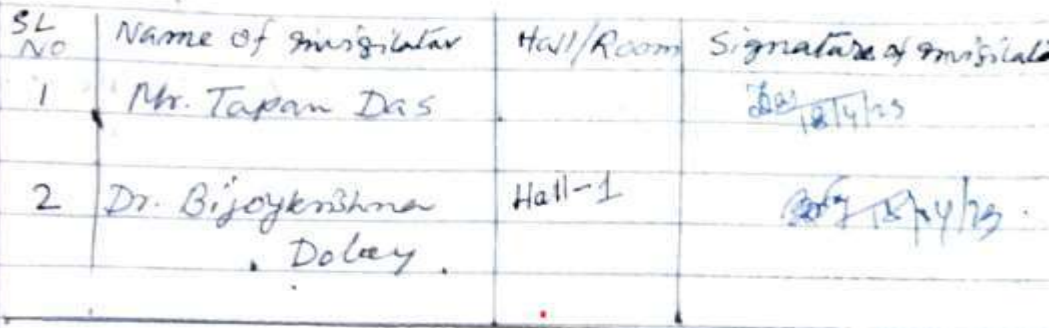 SL NO Name of invigilator Hall/Room Signature of invigilato
1 Mr. Tapan Das 18/4/23
2 Dr. Bijoykrishna Hall-1 18/04/23
Doloey.